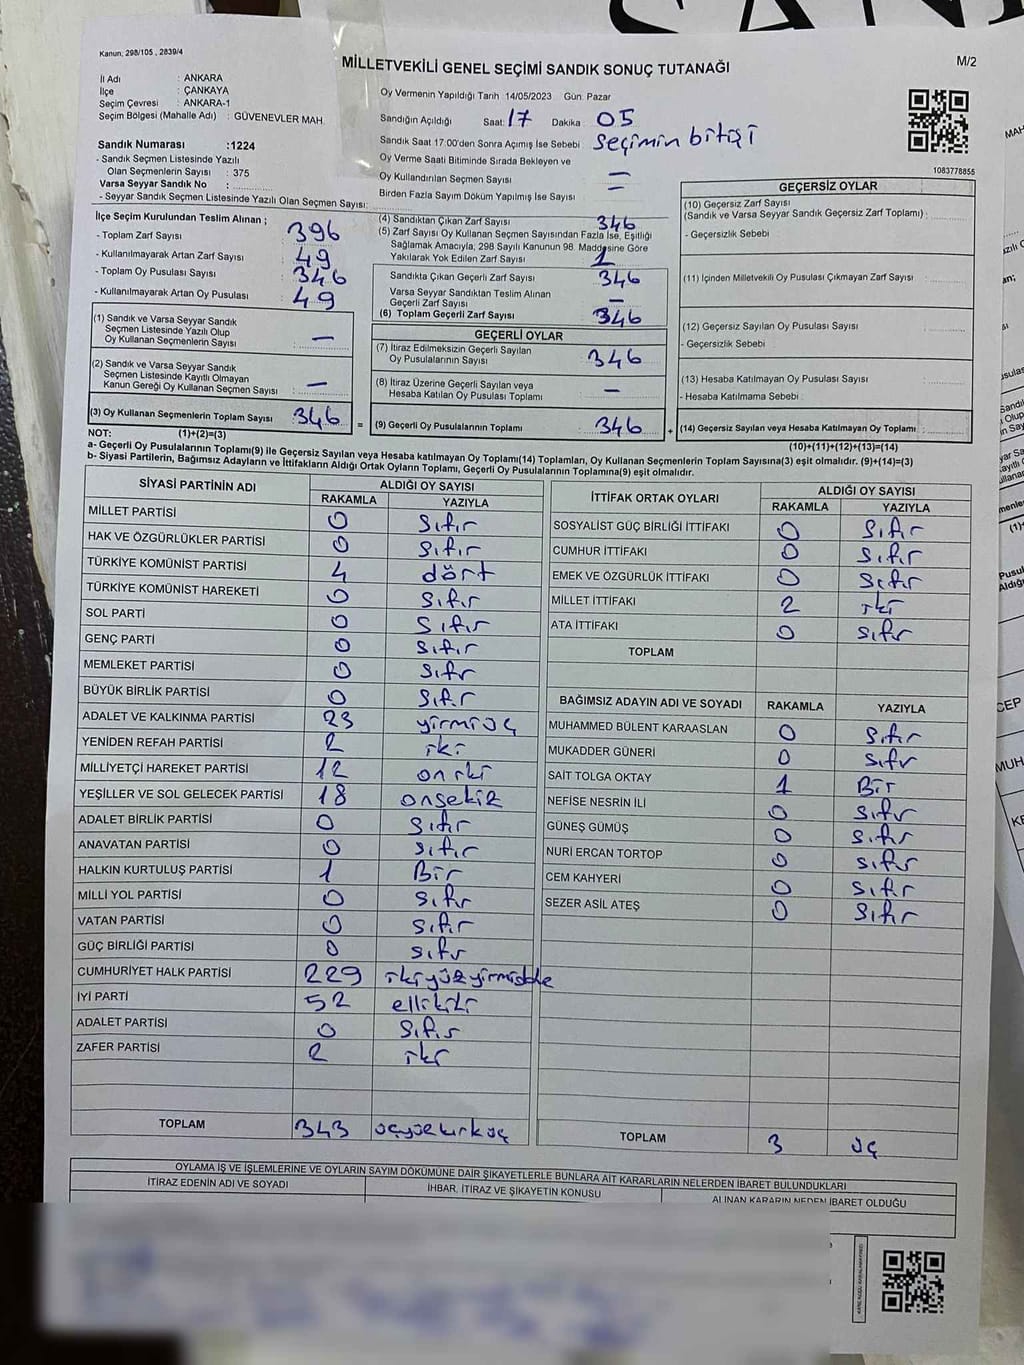 Kanun; 298/105 , 2839/4
MİLLETVEKİLİ GENEL SEÇİMİ SANDIK SONUÇ TUTANAĞI
M/2
İl Adı : ANKARA
İlçe : ÇANKAYA
Seçim Çevresi : ANKARA-1
Seçim Bölgesi (Mahalle Adı) : GÜVENEVLER MAH.
Sandık Numarası :1224
- Sandık Seçmen Listesinde Yazılı
Olan Seçmenlerin Sayısı : 375
Varsa Seyyar Sandık No :
- Seyyar Sandık Seçmen Listesinde Yazılı Olan Seçmen Sayısı:
Oy Vermenin Yapıldığı Tarih :14/05/2023 Gün: Pazar
Sandığın Açıldığı Saat: 17 Dakika : 05
Sandık Saat 17:00'den Sonra Açımış İse Sebebi : Seçimin bitişi
Oy Verme Saati Bitiminde Sırada Bekleyen ve
Oy Kullandırılan Seçmen Sayısı –
Birden Fazla Sayım Döküm Yapılmış İse Sayısı : –
1083778855
İlçe Seçim Kurulundan Teslim Alınan ;
- Toplam Zarf Sayısı : 396
- Kullanılmayarak Artan Zarf Sayısı : 49
- Toplam Oy Pusulası Sayısı : 346
- Kullanılmayarak Artan Oy Pusulası : 49
(1) Sandık ve Varsa Seyyar Sandık
Seçmen Listesinde Yazılı Olup
Oy Kullanan Seçmenlerin Sayısı : –
(2) Sandık ve Varsa Seyyar Sandık
Seçmen Listesinde Kayıtlı Olmayan
Kanun Gereği Oy Kullanan Seçmen Sayısı : –
(3) Oy Kullanan Seçmenlerin Toplam Sayısı : 346 =
(4) Sandıktan Çıkan Zarf Sayısı : 346
(5) Zarf Sayısı Oy Kullanan Seçmen Sayısından Fazla İse, Eşitliği
Sağlamak Amacıyla, 298 Sayılı Kanunun 98. Maddesine Göre
Yakılarak Yok Edilen Zarf Sayısı : 1
Sandıkta Çıkan Geçerli Zarf Sayısı : 346
Varsa Seyyar Sandıktan Teslim Alınan
Geçerli Zarf Sayısı : –
(6) Toplam Geçerli Zarf Sayısı : 346
GEÇERLİ OYLAR
(7) İtiraz Edilmeksizin Geçerli Sayılan
Oy Pusulalarının Sayısı : 346
(8) İtiraz Üzerine Geçerli Sayılan veya
Hesaba Katılan Oy Pusulası Toplamı : –
(9) Geçerli Oy Pusulalarının Toplamı : 346 +
GEÇERSİZ OYLAR
(10) Geçersiz Zarf Sayısı
(Sandık ve Varsa Seyyar Sandık Geçersiz Zarf Toplamı) :
- Geçersizlik Sebebi :
(11) İçinden Milletvekili Oy Pusulası Çıkmayan Zarf Sayısı :
(12) Geçersiz Sayılan Oy Pusulası Sayısı :
- Geçersizlik Sebebi :
(13) Hesaba Katılmayan Oy Pusulası Sayısı :
- Hesaba Katılmama Sebebi :
(14) Geçersiz Sayılan veya Hesaba Katılmayan Oy Toplamı :
NOT: (1)+(2)=(3)
(10)+(11)+(12)+(13)=(14)
a- Geçerli Oy Pusulalarının Toplamı(9) ile Geçersiz Sayılan veya Hesaba katılmayan Oy Toplamı(14) Toplamları, Oy Kullanan Seçmenlerin Toplam Sayısına(3) eşit olmalıdır. (9)+(14)=(3)
b- Siyasi Partilerin, Bağımsız Adayların ve İttifakların Aldığı Ortak Oyların Toplamı, Geçerli Oy Pusulalarının Toplamına(9) eşit olmalıdır.
SİYASİ PARTİNİN ADI ALDIĞI OY SAYISI
RAKAMLA YAZIYLA
MİLLET PARTİSİ 0 Sıfır
HAK VE ÖZGÜRLÜKLER PARTİSİ 0 Sıfır
TÜRKİYE KOMÜNİST PARTİSİ 4 dört
TÜRKİYE KOMÜNİST HAREKETİ 0 Sıfır
SOL PARTİ 0 Sıfır
GENÇ PARTİ 0 Sıfır
MEMLEKET PARTİSİ 0 Sıfır
BÜYÜK BİRLİK PARTİSİ 0 Sıfır
ADALET VE KALKINMA PARTİSİ 23 yirmiüç
YENİDEN REFAH PARTİSİ 2 iki
MİLLİYETÇİ HAREKET PARTİSİ 12 on iki
YEŞİLLER VE SOL GELECEK PARTİSİ 18 onsekiz
ADALET BİRLİK PARTİSİ 0 Sıfır
ANAVATAN PARTİSİ 0 Sıfır
HALKIN KURTULUŞ PARTİSİ 1 Bir
MİLLİ YOL PARTİSİ 0 Sıfır
VATAN PARTİSİ 0 Sıfır
GÜÇ BİRLİĞİ PARTİSİ 0 Sıfır
CUMHURİYET HALK PARTİSİ 229
İYİ PARTİ 52 ellikiki
ADALET PARTİSİ 0 Sıfır
ZAFER PARTİSİ 2 iki
TOPLAM 343 üçyüzkırküç
İTTİFAK ORTAK OYLARI ALDIĞI OY SAYISI
RAKAMLA YAZIYLA
SOSYALİST GÜÇ BİRLİĞİ İTTİFAKI 0 Sıfır
CUMHUR İTTİFAKI 0 Sıfır
EMEK VE ÖZGÜRLÜK İTTİFAKI 0 Sıfır
MİLLET İTTİFAKI 2 iki
ATA İTTİFAKI 0 sıfır
TOPLAM
BAĞIMSIZ ADAYIN ADI VE SOYADI RAKAMLA YAZIYLA
MUHAMMED BÜLENT KARAASLAN 0 Sıfır
MUKADDER GÜNERİ 0 Sıfır
SAİT TOLGA OKTAY 1 Bir
NEFİSE NESRİN İLİ 0 Sıfır
GÜNEŞ GÜMÜŞ 0 Sıfır
NURİ ERCAN TORTOP 0 Sıfır
CEM KAHYERİ 0 Sıfır
SEZER ASİL ATEŞ 0 Sıfır
TOPLAM 3 üç
OYLAMA İŞ VE İŞLEMLERİNE VE OYLARIN SAYIM DÖKÜMÜNE DAİR ŞİKAYETLERLE BUNLARA AİT KARARLARIN NELERDEN İBARET BULUNDUKLARI
İTİRAZ EDENİN ADI VE SOYADI İHBAR, İTİRAZ VE ŞİKAYETİN KONUSU ALINAN KARARIN NEDEN İBARET OLDUĞU